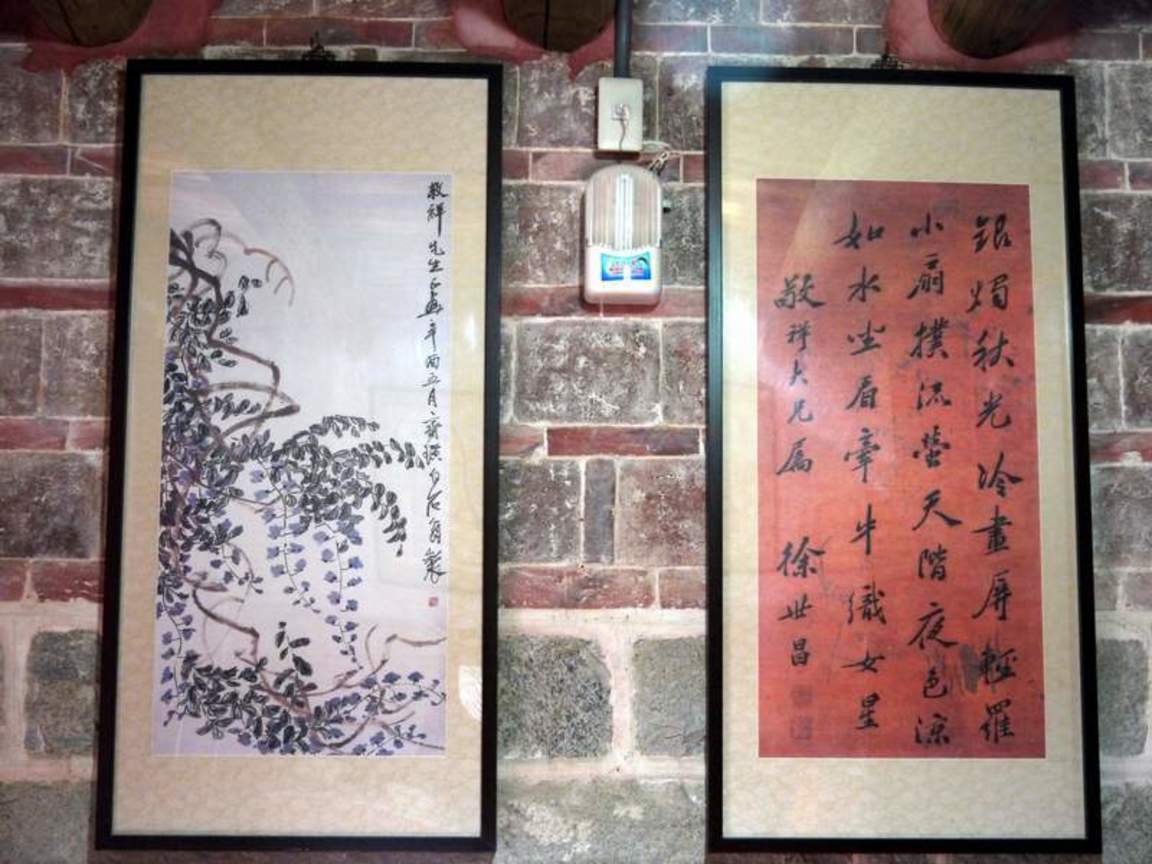 銀燭秋光冷畫屏輕羅
小扇撲流螢天階夜色涼
如水坐看牽牛織女星
敬祥大兄屬 徐世昌
敬祥先生正畫辛酉五月齊璜白石製